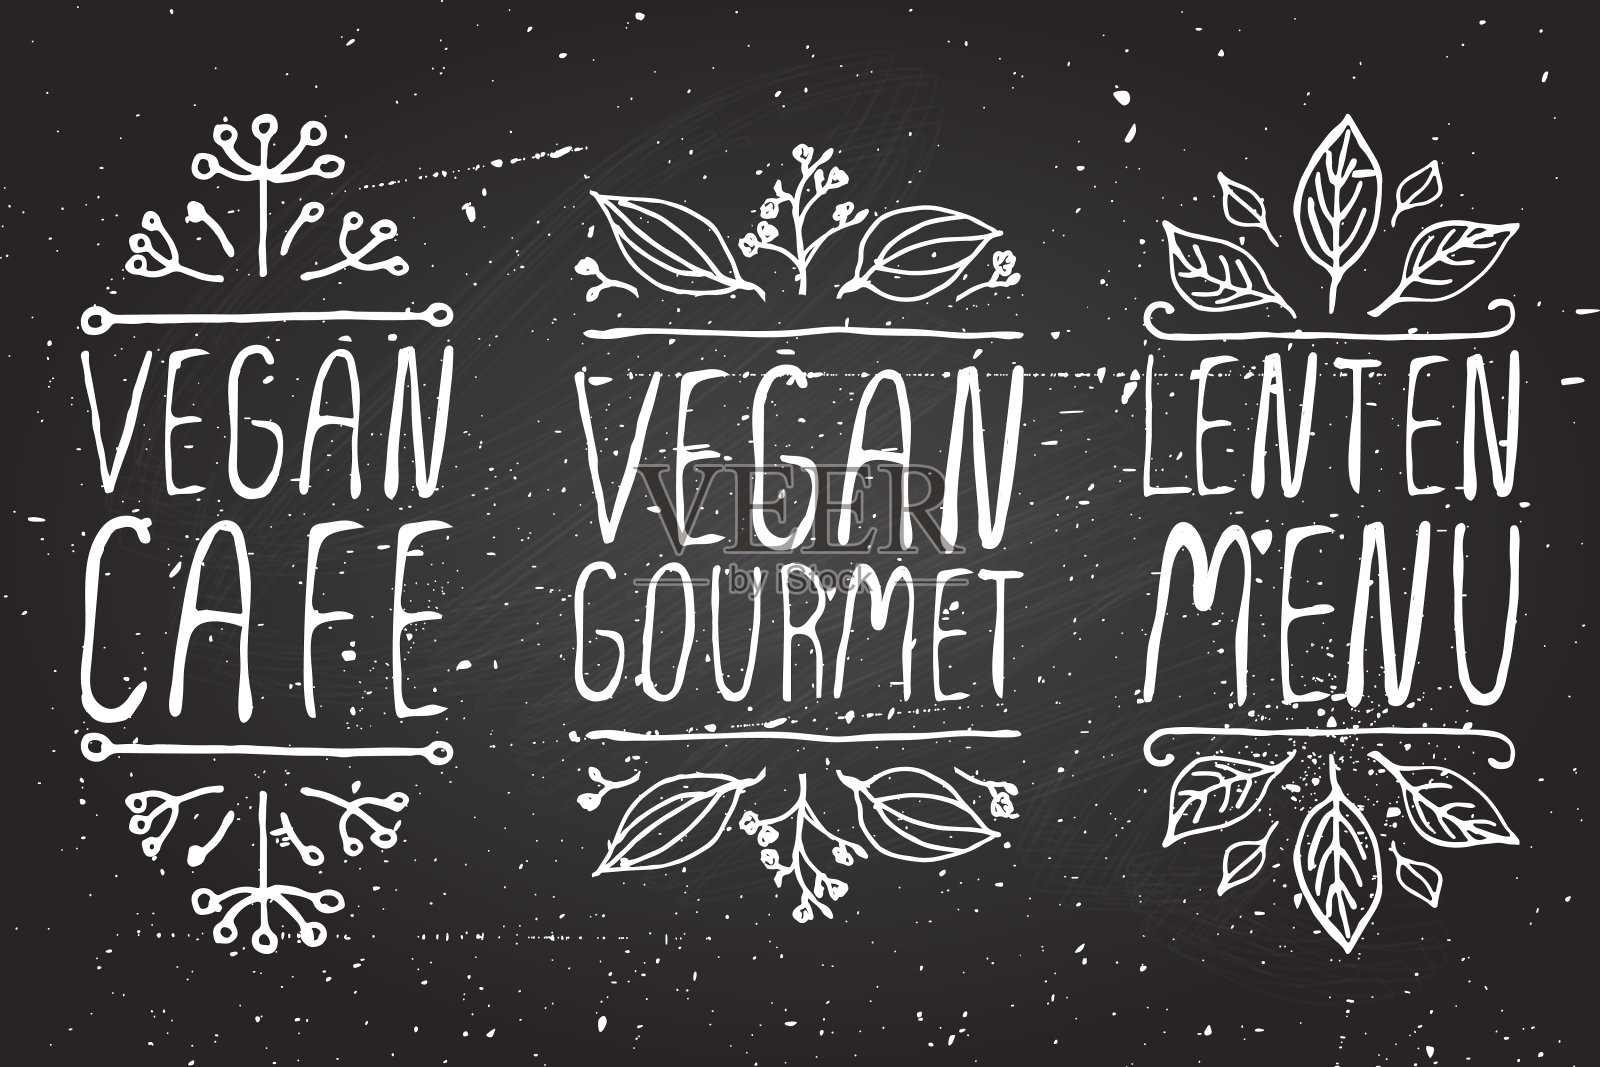 VEGAN
CAFE
VEGAN
GOURMET
LENTEN
MENU
VEER
by iStock